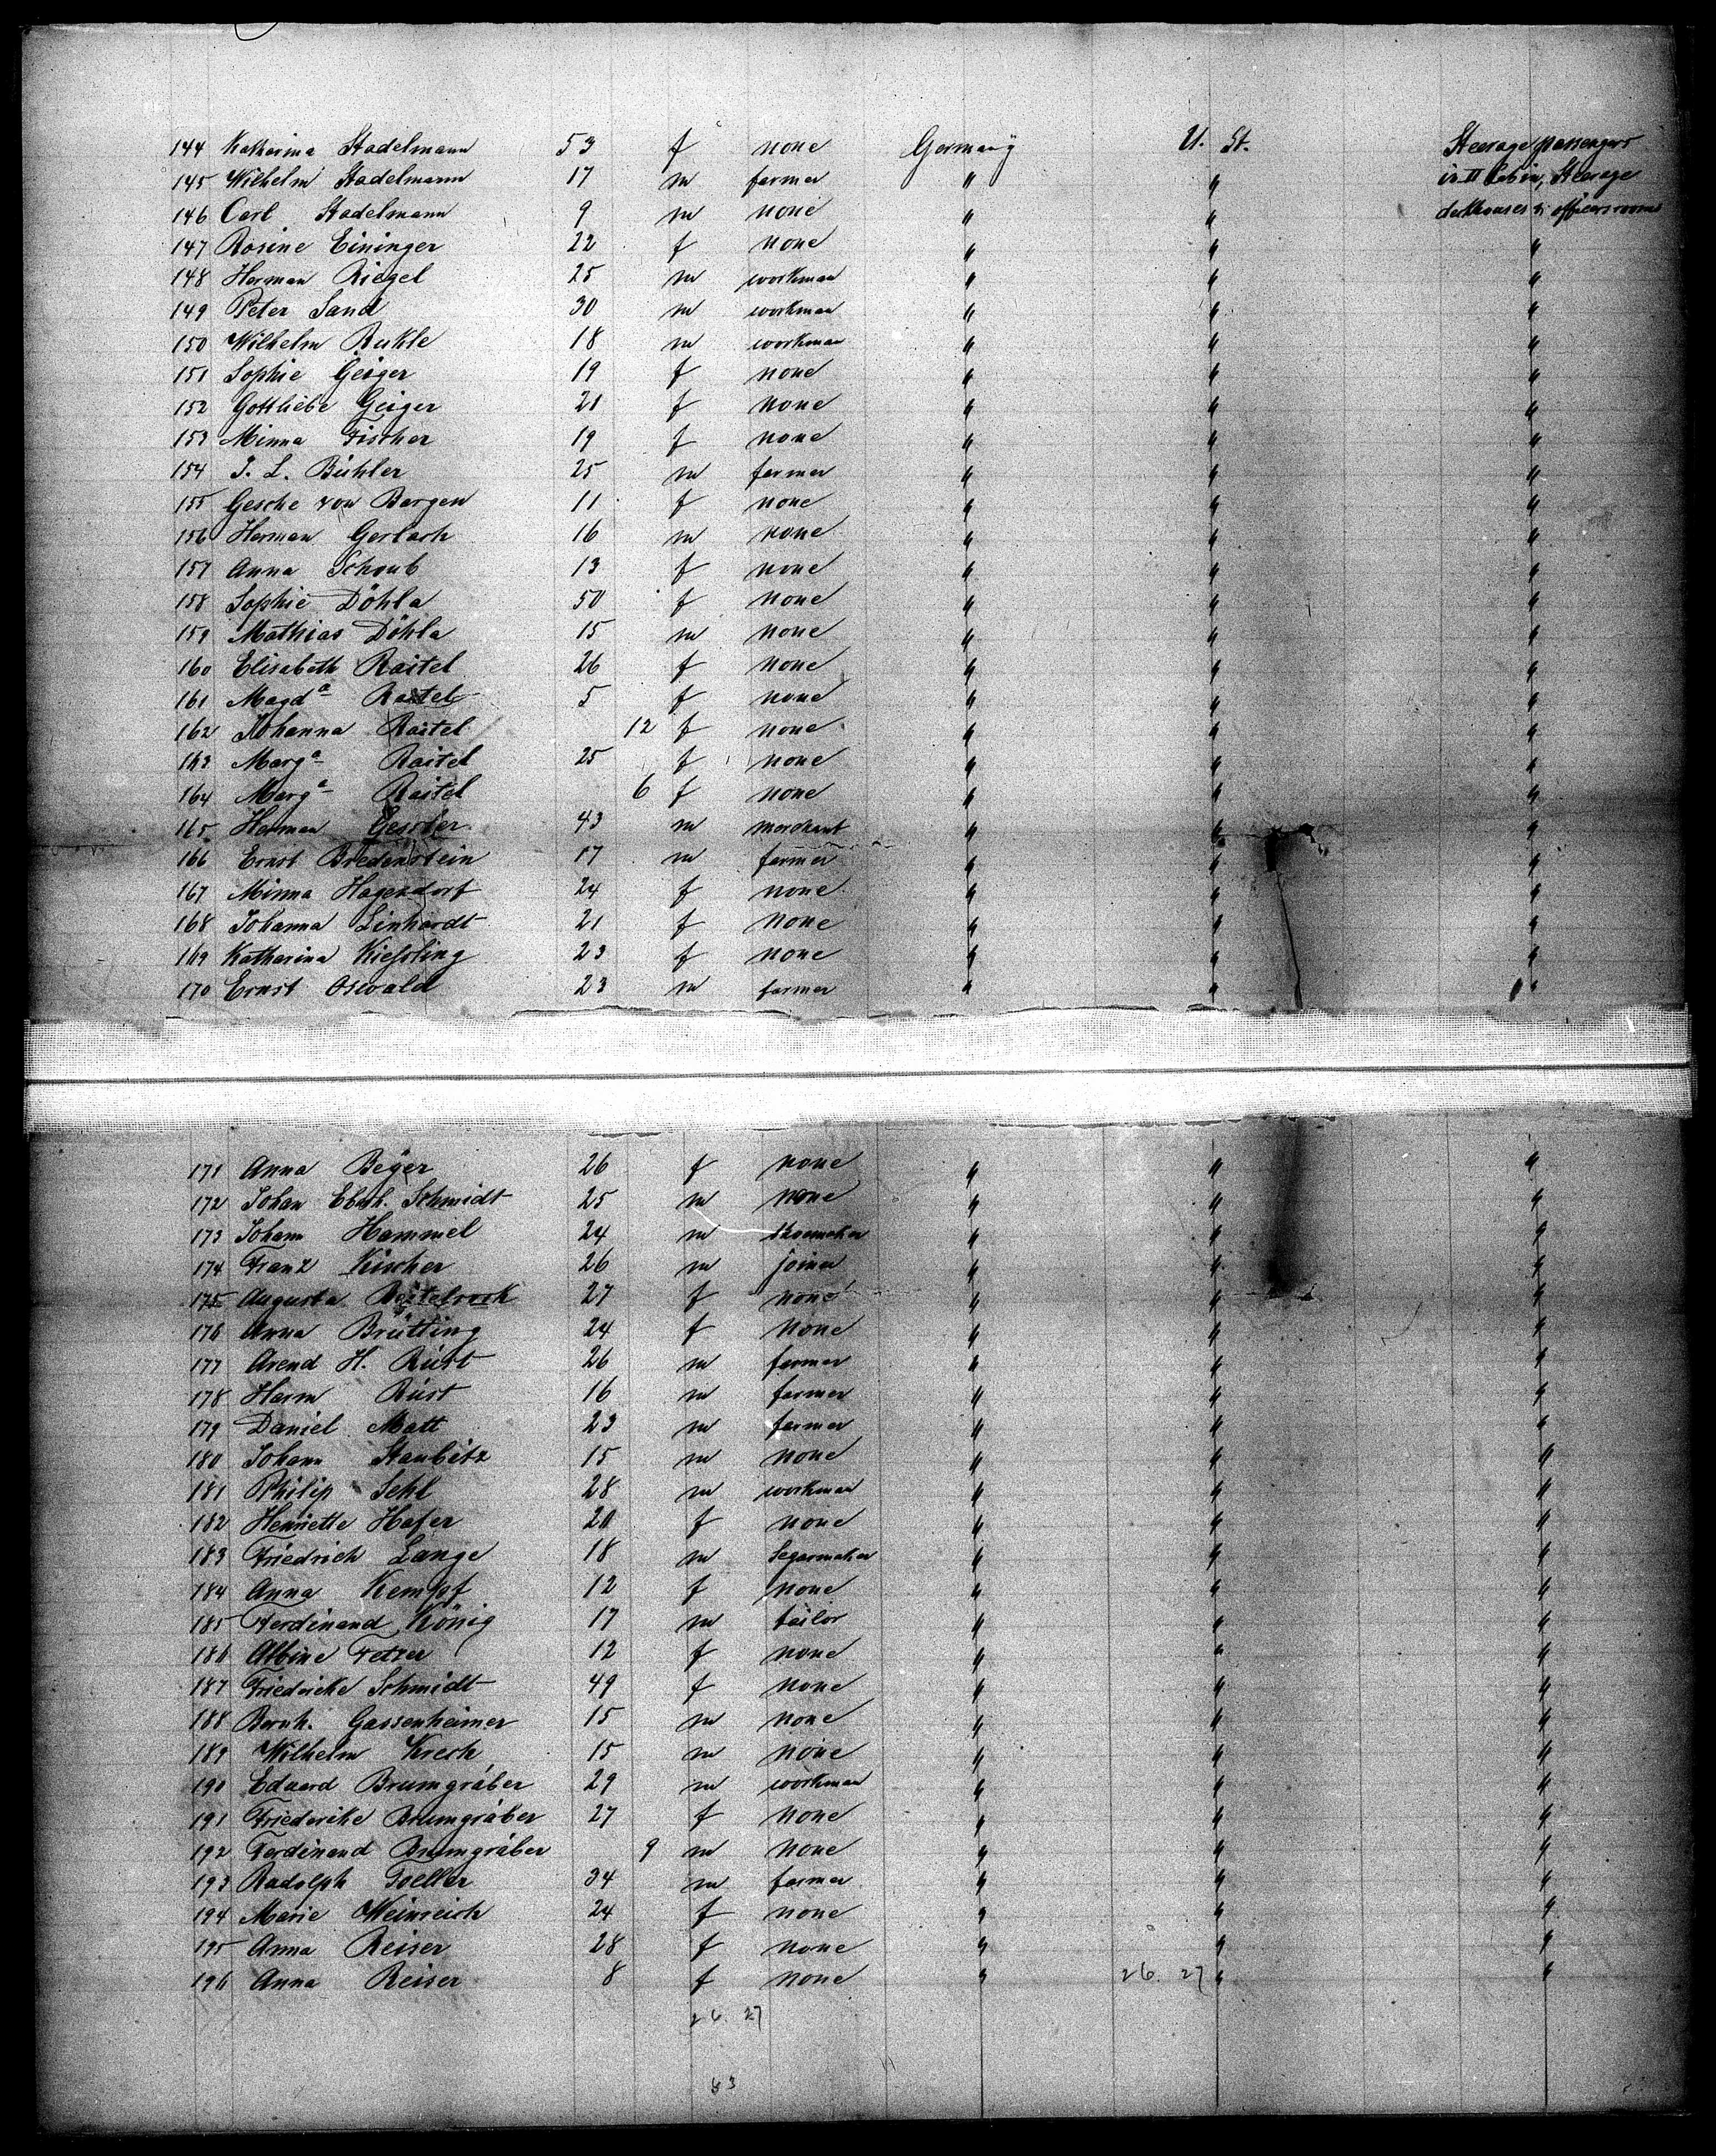 144 Katharina Stadelmann 53 f none Germany U. St. Steerage passengers
145 Wilhelm Stadelmann 17 m farmer " " in II Cabin, Steerage
146 Carl Stadelmann 9 m none " " deckhouses & officersrooms
147 Rosine Eininger 22 f none " " "
148 Herman Riegel 25 m workman " " "
149 Peter Sand 30 m workman " " "
150 Wilhelm Rukle 18 m workman " " "
151 Sophie Geiger 19 f none " " "
152 Gottliebe Geiger 21 f none " " "
153 Minna Fischer 19 f none " " "
154 J. L. Bühler 25 m farmer " " "
155 Gesche von Bargen 11 f none " " "
156 Herman Gerlach 16 m none " " "
157 Anna Schoub 13 f none " " "
158 Sophie Döhla 50 f none " " "
159 Mathias Döhla 15 m none " " "
160 Elisabeth Raitel 26 f none " " "
161 Magda Raitel 5 f none " " "
162 Johanna Raitel 12 f none " " "
163 Marga Raitel 25 f none " " "
164 Marga Raitel 6 f none " " "
165 Herman Gessler 43 m merchant " " "
166 Ernst Bredenstein 17 m farmer " " "
167 Minna Hagendorf 24 f none " " "
168 Johanna Linhardt 21 f none " " "
169 Katharina Kiessling 23 f none " " "
170 Ernst Oswald 23 m farmer " " "
171 Anna Beÿer 26 f none " " "
172 Johan Eberh. Schmidt 25 m none " " "
173 Johann Hammel 24 m shoemaker " " "
174 Franz Kischer 26 m joiner " " "
175 Augusta 27 f none " " "
176 Anna Brütting 24 f none " " "
177 Arend H. Rüst 26 m farmer " " "
178 Harm Rüst 16 m farmer " " "
179 Daniel Matt 23 m farmer " " "
180 Johann Staubitz 15 m none " " "
181 Philip Sehl 28 m workman " " "
182 Henriette Hofer 20 f none " " "
183 Friedrich Lange 18 m Segarmaker " " "
184 Anna Kempf 12 f none " " "
185 Ferdinand König 17 m tailor " " "
186 Albine Fetzer 12 f none " " "
187 Friedricke Schmidt 49 f none " " "
188 Bernh. Gassenheimer 15 m none " " "
189 Wilhelm Kresh 15 m none " " "
190 Eduard Brumgräber 29 m workman " " "
191 Friederike Brumgräber 27 f none " " "
192 Ferdinand Brumgräber 9 m none " " "
193 Radolph Toeller 34 m farmer " " "
194 Marie Weinreich 24 f none " " "
195 Anna Reiser 28 f none " " "
196 Anna Reiser 8 f none " 26. 27 " "
26. 27
63